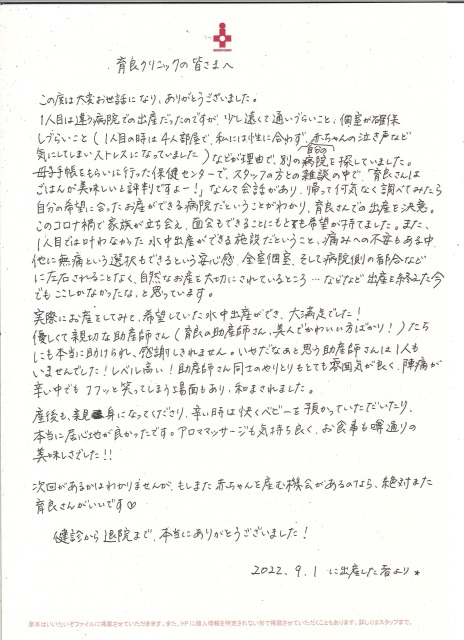 育良クリニックの皆さまへ
この度は大変お世話になり、ありがとうございました。
1人目は違う病院での出産だったのですが、少し遠くて通いづらいこと、個室が確保
しづらいこと(1人目の時は4人部屋で、私には性に合わず、赤ちゃんの泣き声など
気にしてしまいストレスになっていました)などが理由で、別の病院を探していました。
母子手帳をもらいに行った保健センターで、スタッフの方との雑談の中で、"育良さんは
ごはんが美味しいと評判ですよー!"なんて会話があり、帰って何気なく調べてみたら
自分の希望に合ったお産ができる病院だということがわかり、育良さんでの出産を決意。
このコロナ禍で家族が立ち会え、面会もできることにもとても希望が持てました。また、
1人目では叶わなかった水中出産ができる施設だということ、痛みへの不安もある中、
他に無痛という選択もできるという安心感、全室個室、そして病院側の都合など
に左右されることなく、自然なお産を大切にされているところ…などなど出産を終えた今
でもここしかなかったな、と思っています。
実際にお産をしてみて、希望していた水中出産ができ、大満足でした!
優しくて親切な助産師さん(育良の助産師さん、美人でかわいい方ばかり!)たち
にも本当に助けられ、感謝しきれません。いやだなぁと思う助産師さんは1人も
いませんでした!レベル高い!助産師さん同士のやりとりもとても雰囲気が良く、陣痛が
辛い中でもフフッと笑ってしまう場面もあり、和まされました。
産後も、親身になってくださり、辛い時は快くベビーを預かっていただいたり、
本当に居心地が良かったです。アロママッサージも気持ち良く、お食事も噂通りの
美味しさでした!!
次回があるかはわかりませんが、もしまた赤ちゃんを産む機会があるのなら、絶対また
育良さんがいいです♡
健診から退院まで、本当にありがとうございました!
2022.9.1 に出産した者より★
原本はいいたいぞファイルに掲載させていただきます。また、HPに個人情報を特定されない形で掲載させていただくこともあります。詳しくはスタッフまで。